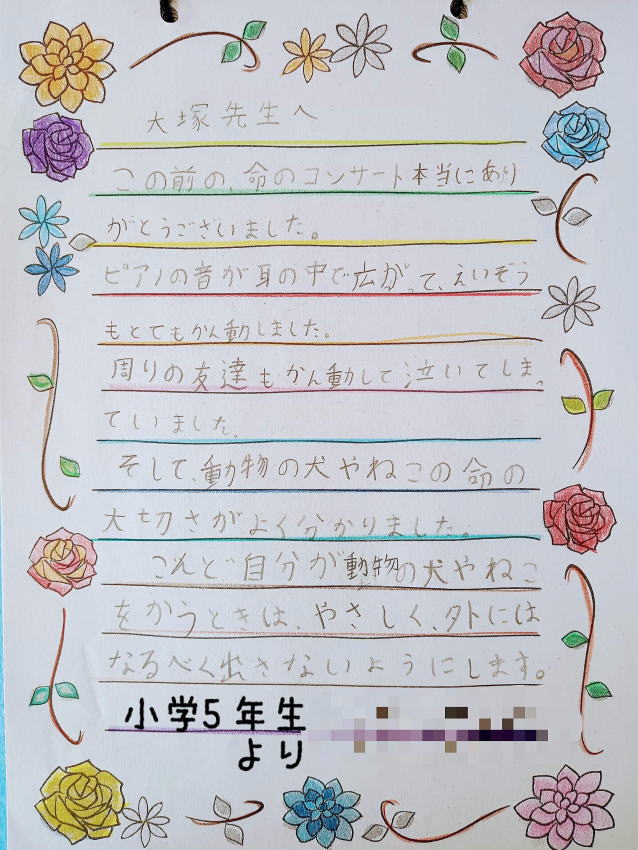 大塚先生へ
この前の、命のコンサート本当にあり
がとうございました。
ピアノの音が耳の中で広がって、えいぞう
もとてもかん動しました。
周りの友達もかん動して泣いてしまっ
ていました。
そして、動物の犬やねこの命の
大切さがよく分かりました。
こんど自分が動物の犬やねこ
をかうときは、やさしく、外には
なるべく出さないようにします。
小学5年生
より